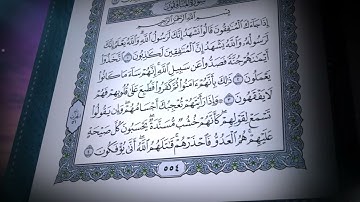 سورة المنافقون
بسم الله الرحمن الرحيم
إِذَا جَآءَكَ ٱلْمُنَٰفِقُونَ قَالُوا۟ نَشْهَدُ إِنَّكَ لَرَسُولُ ٱللَّهِ وَٱللَّهُ يَعْلَمُ إِنَّكَ
لَرَسُولُهُۥ وَٱللَّهُ يَشْهَدُ إِنَّ ٱلْمُنَٰفِقِينَ لَكَٰذِبُونَ ١ ٱتَّخَذُوٓا۟
أَيْمَٰنَهُمْ جُنَّةً فَصَدُّوا۟ عَن سَبِيلِ ٱللَّهِ إِنَّهُمْ سَآءَ مَا كَانُوا۟
يَعْمَلُونَ ٢ ذَٰلِكَ بِأَنَّهُمْ ءَامَنُوا۟ ثُمَّ كَفَرُوا۟ فَطُبِعَ عَلَىٰ قُلُوبِهِمْ فَهُمْ
لَا يَفْقَهُونَ ٣ وَإِذَا رَأَيْتَهُمْ تُعْجِبُكَ أَجْسَامُهُمْ وَإِن يَقُولُوا۟
تَسْمَعْ لِقَوْلِهِمْ كَأَنَّهُمْ خُشُبٌ مُّسَنَّدَةٌ يَحْسَبُونَ كُلَّ صَيْحَةٍ
عَلَيْهِمْ هُمُ ٱلْعَدُوُّ فَٱحْذَرْهُمْ قَٰتَلَهُمُ ٱللَّهُ أَنَّىٰ يُؤْفَكُونَ ٤
٥٥٤